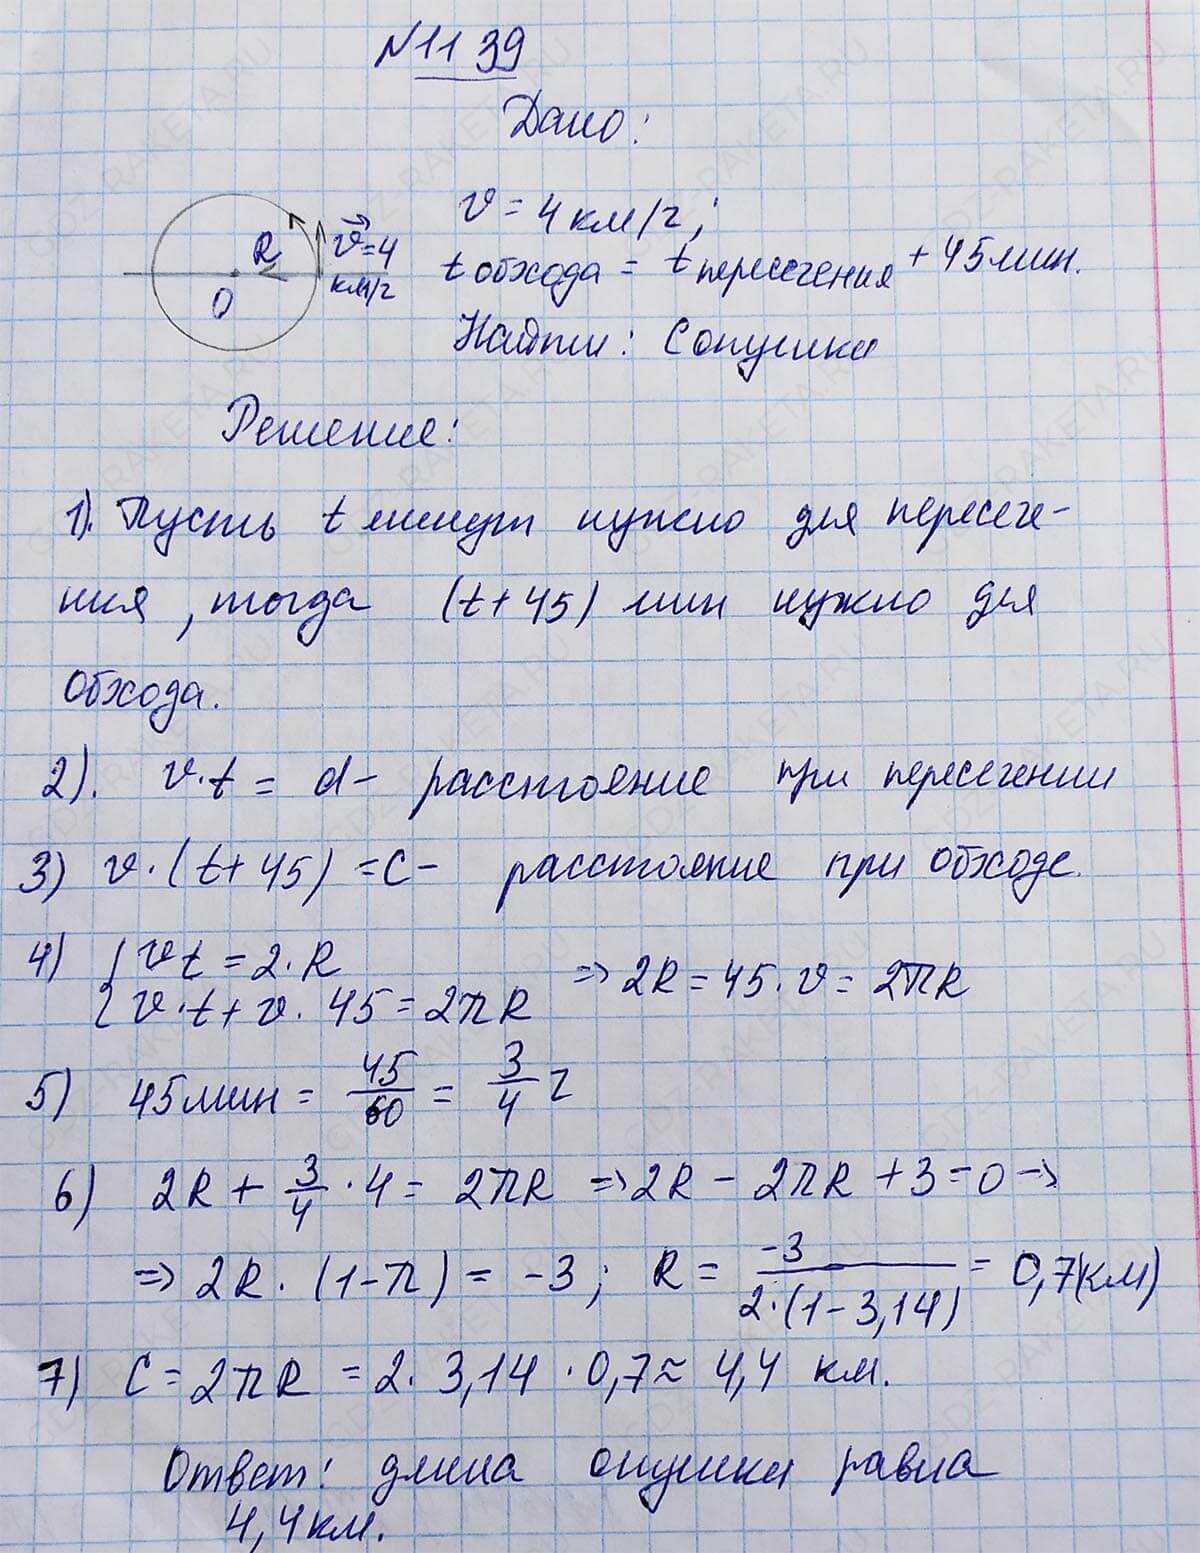 №1139
Дано:
R
O
v⃗=4
км/ч
v = 4 км/ч;
t обхода = t пересечения + 45 мин.
Найти: C опушки
Решение:
1). Пусть t минут нужно для пересече-
ния, тогда (t+45) мин нужно для
обхода.
2). v·t = d – расстояние при пересечении
3) v·(t+45) = C – расстояние при обходе.
4) { vt = 2·R
{ v·t + v·45 = 2πR => 2R = 45·v = 2πR
5) 45 мин = 45/60 = 3/4 ч
6) 2R + 3/4 · 4 = 2πR => 2R – 2πR + 3 = 0 =>
=> 2R·(1–π) = –3; R = –3/2·(1–3,14) = 0,7(км)
7) C = 2πR = 2·3,14·0,7 ≈ 4,4 км.
Ответ: длина опушки равна
4,4 км.
GDZ-RAKETA.RU